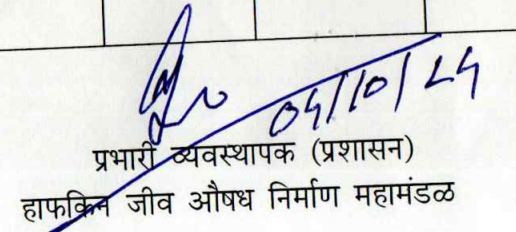 प्रभारी व्यवस्थापक (प्रशासन)
हाफकिन जीव औषध निर्माण महामंडळ